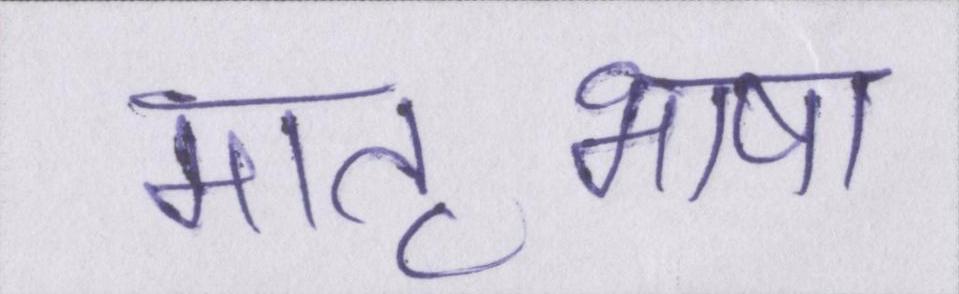 मातृ भाषा